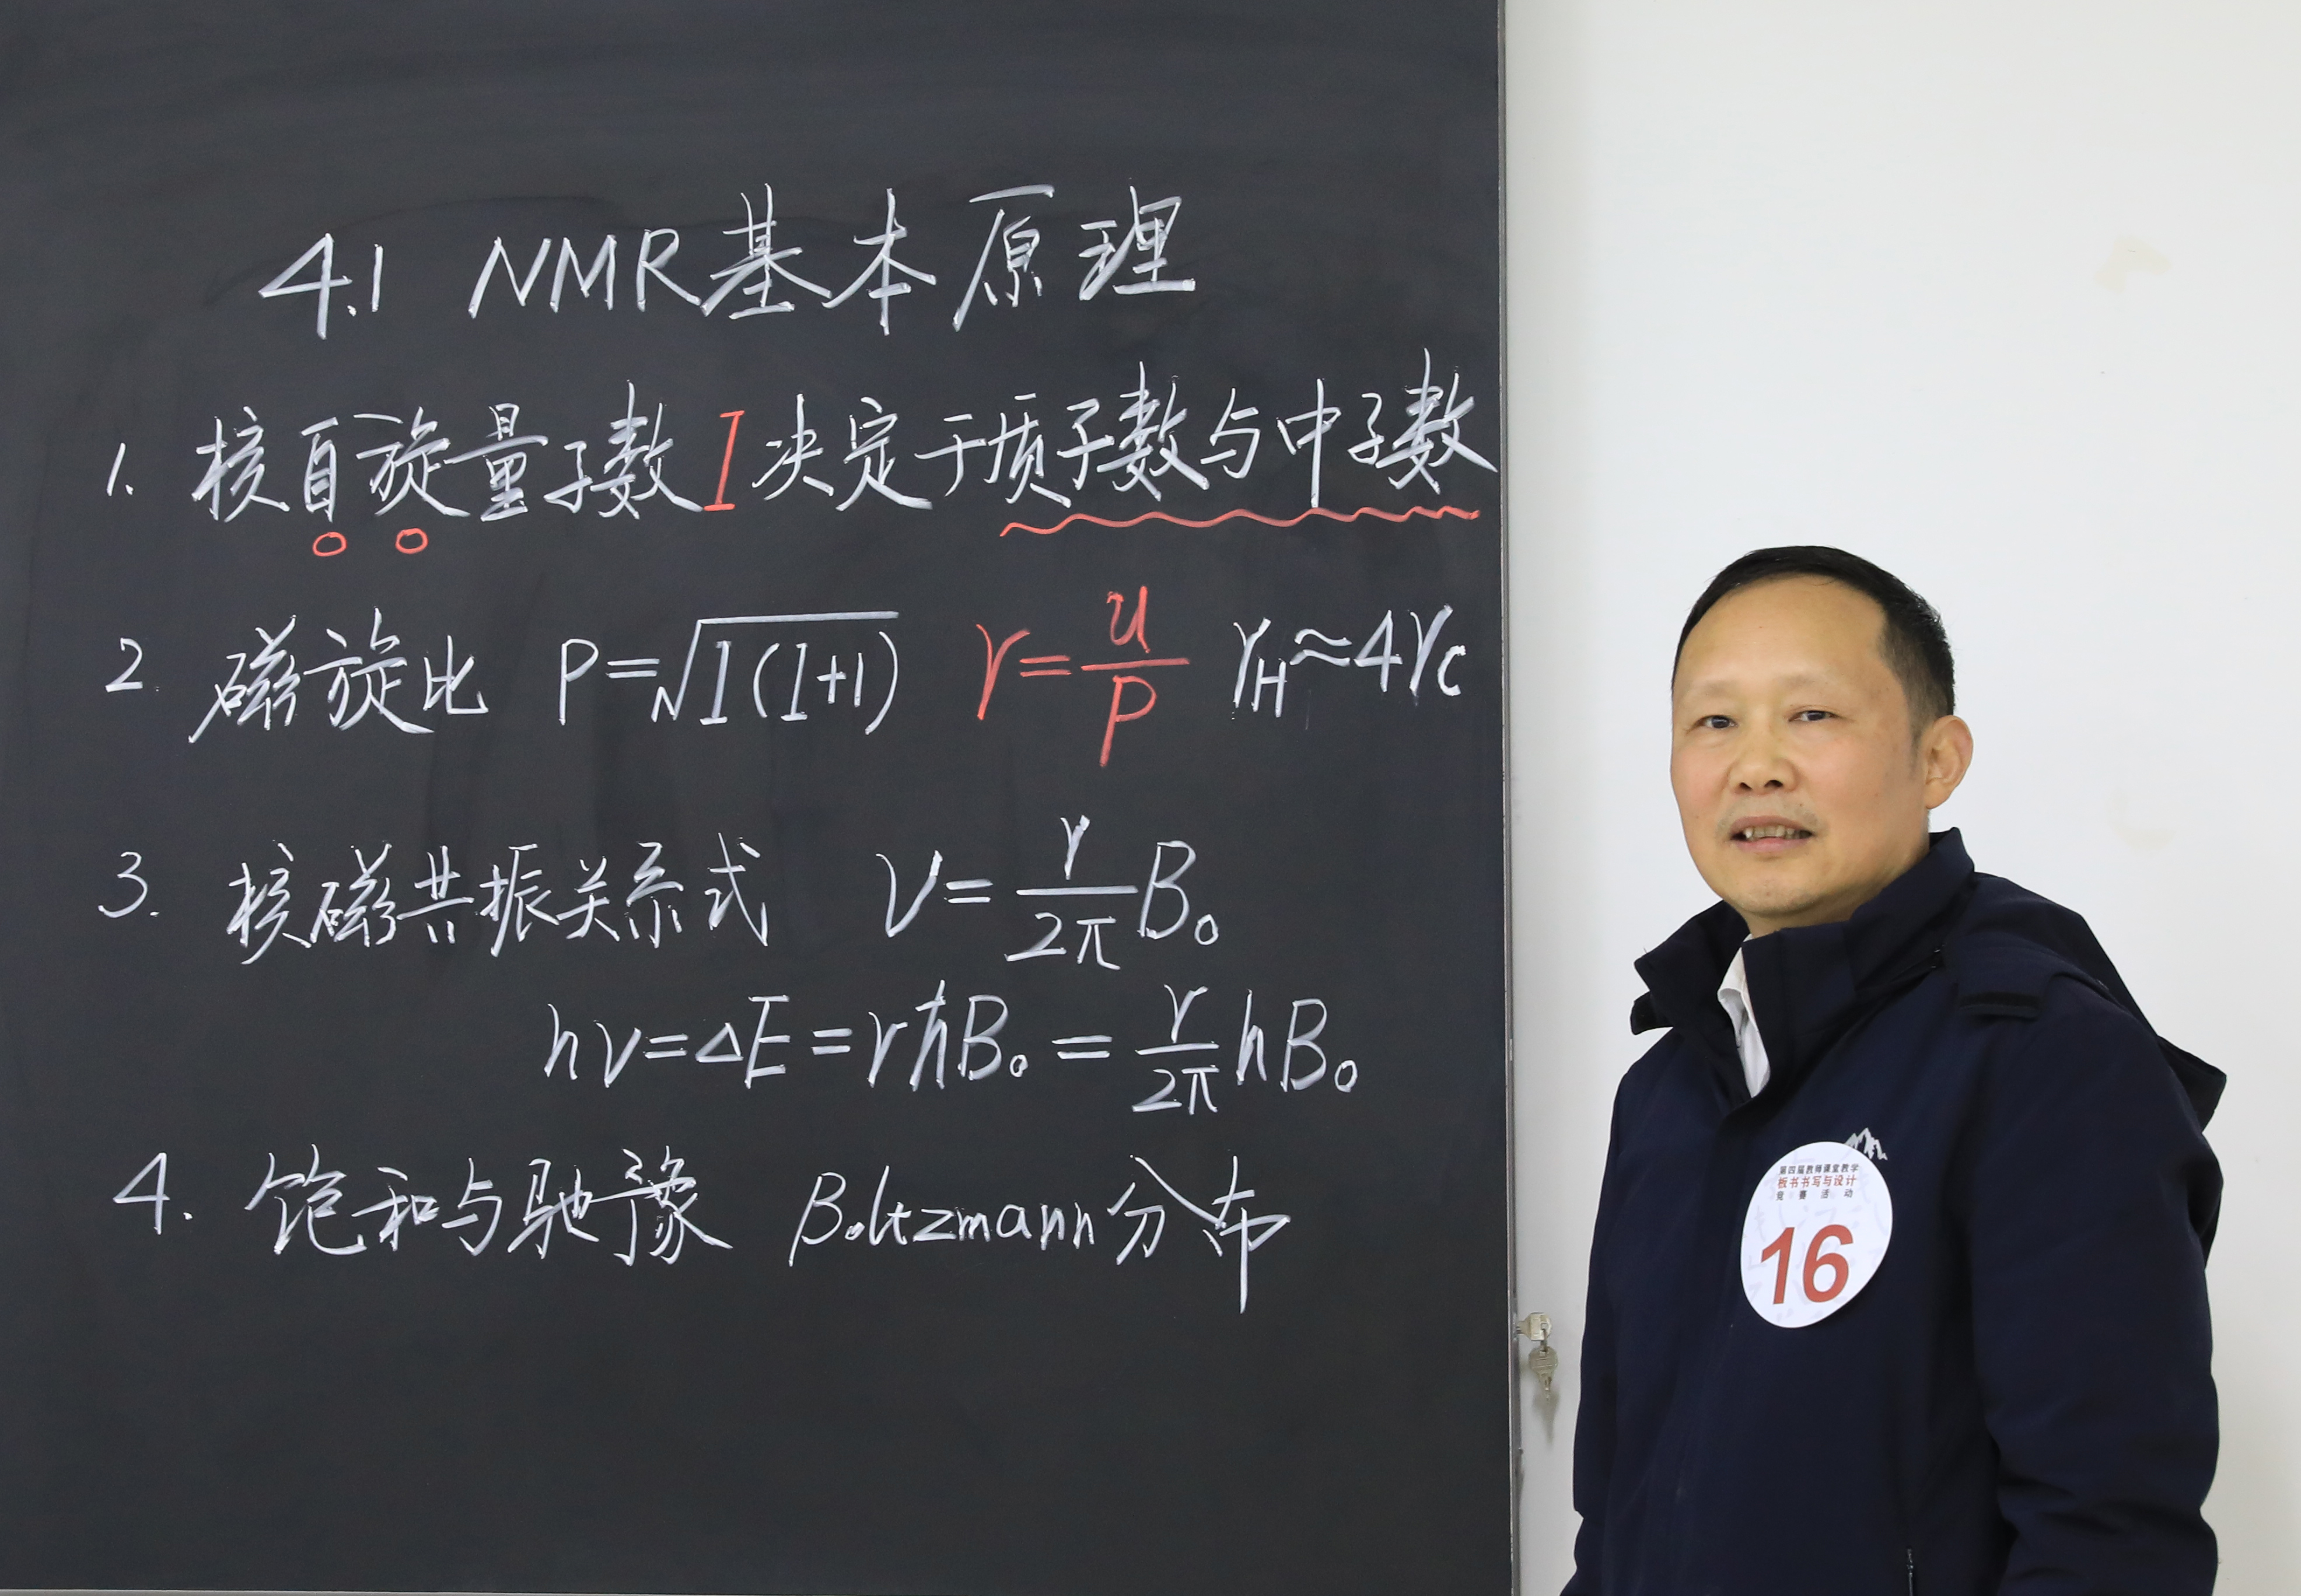 4.1 NMR基本原理
1. 核自旋量子数 I 决定于质子数与中子数
2. 磁旋比 P=√I(I+1) γ=u/P γH≈4γC
3. 核磁共振关系式 ν=γ/2π B₀
hν=ΔE=rℏB₀=γ/2π hB₀
4. 饱和与驰豫 Boltzmann分布
第四届教师课堂教学
板书书写与设计
竞赛活动
16